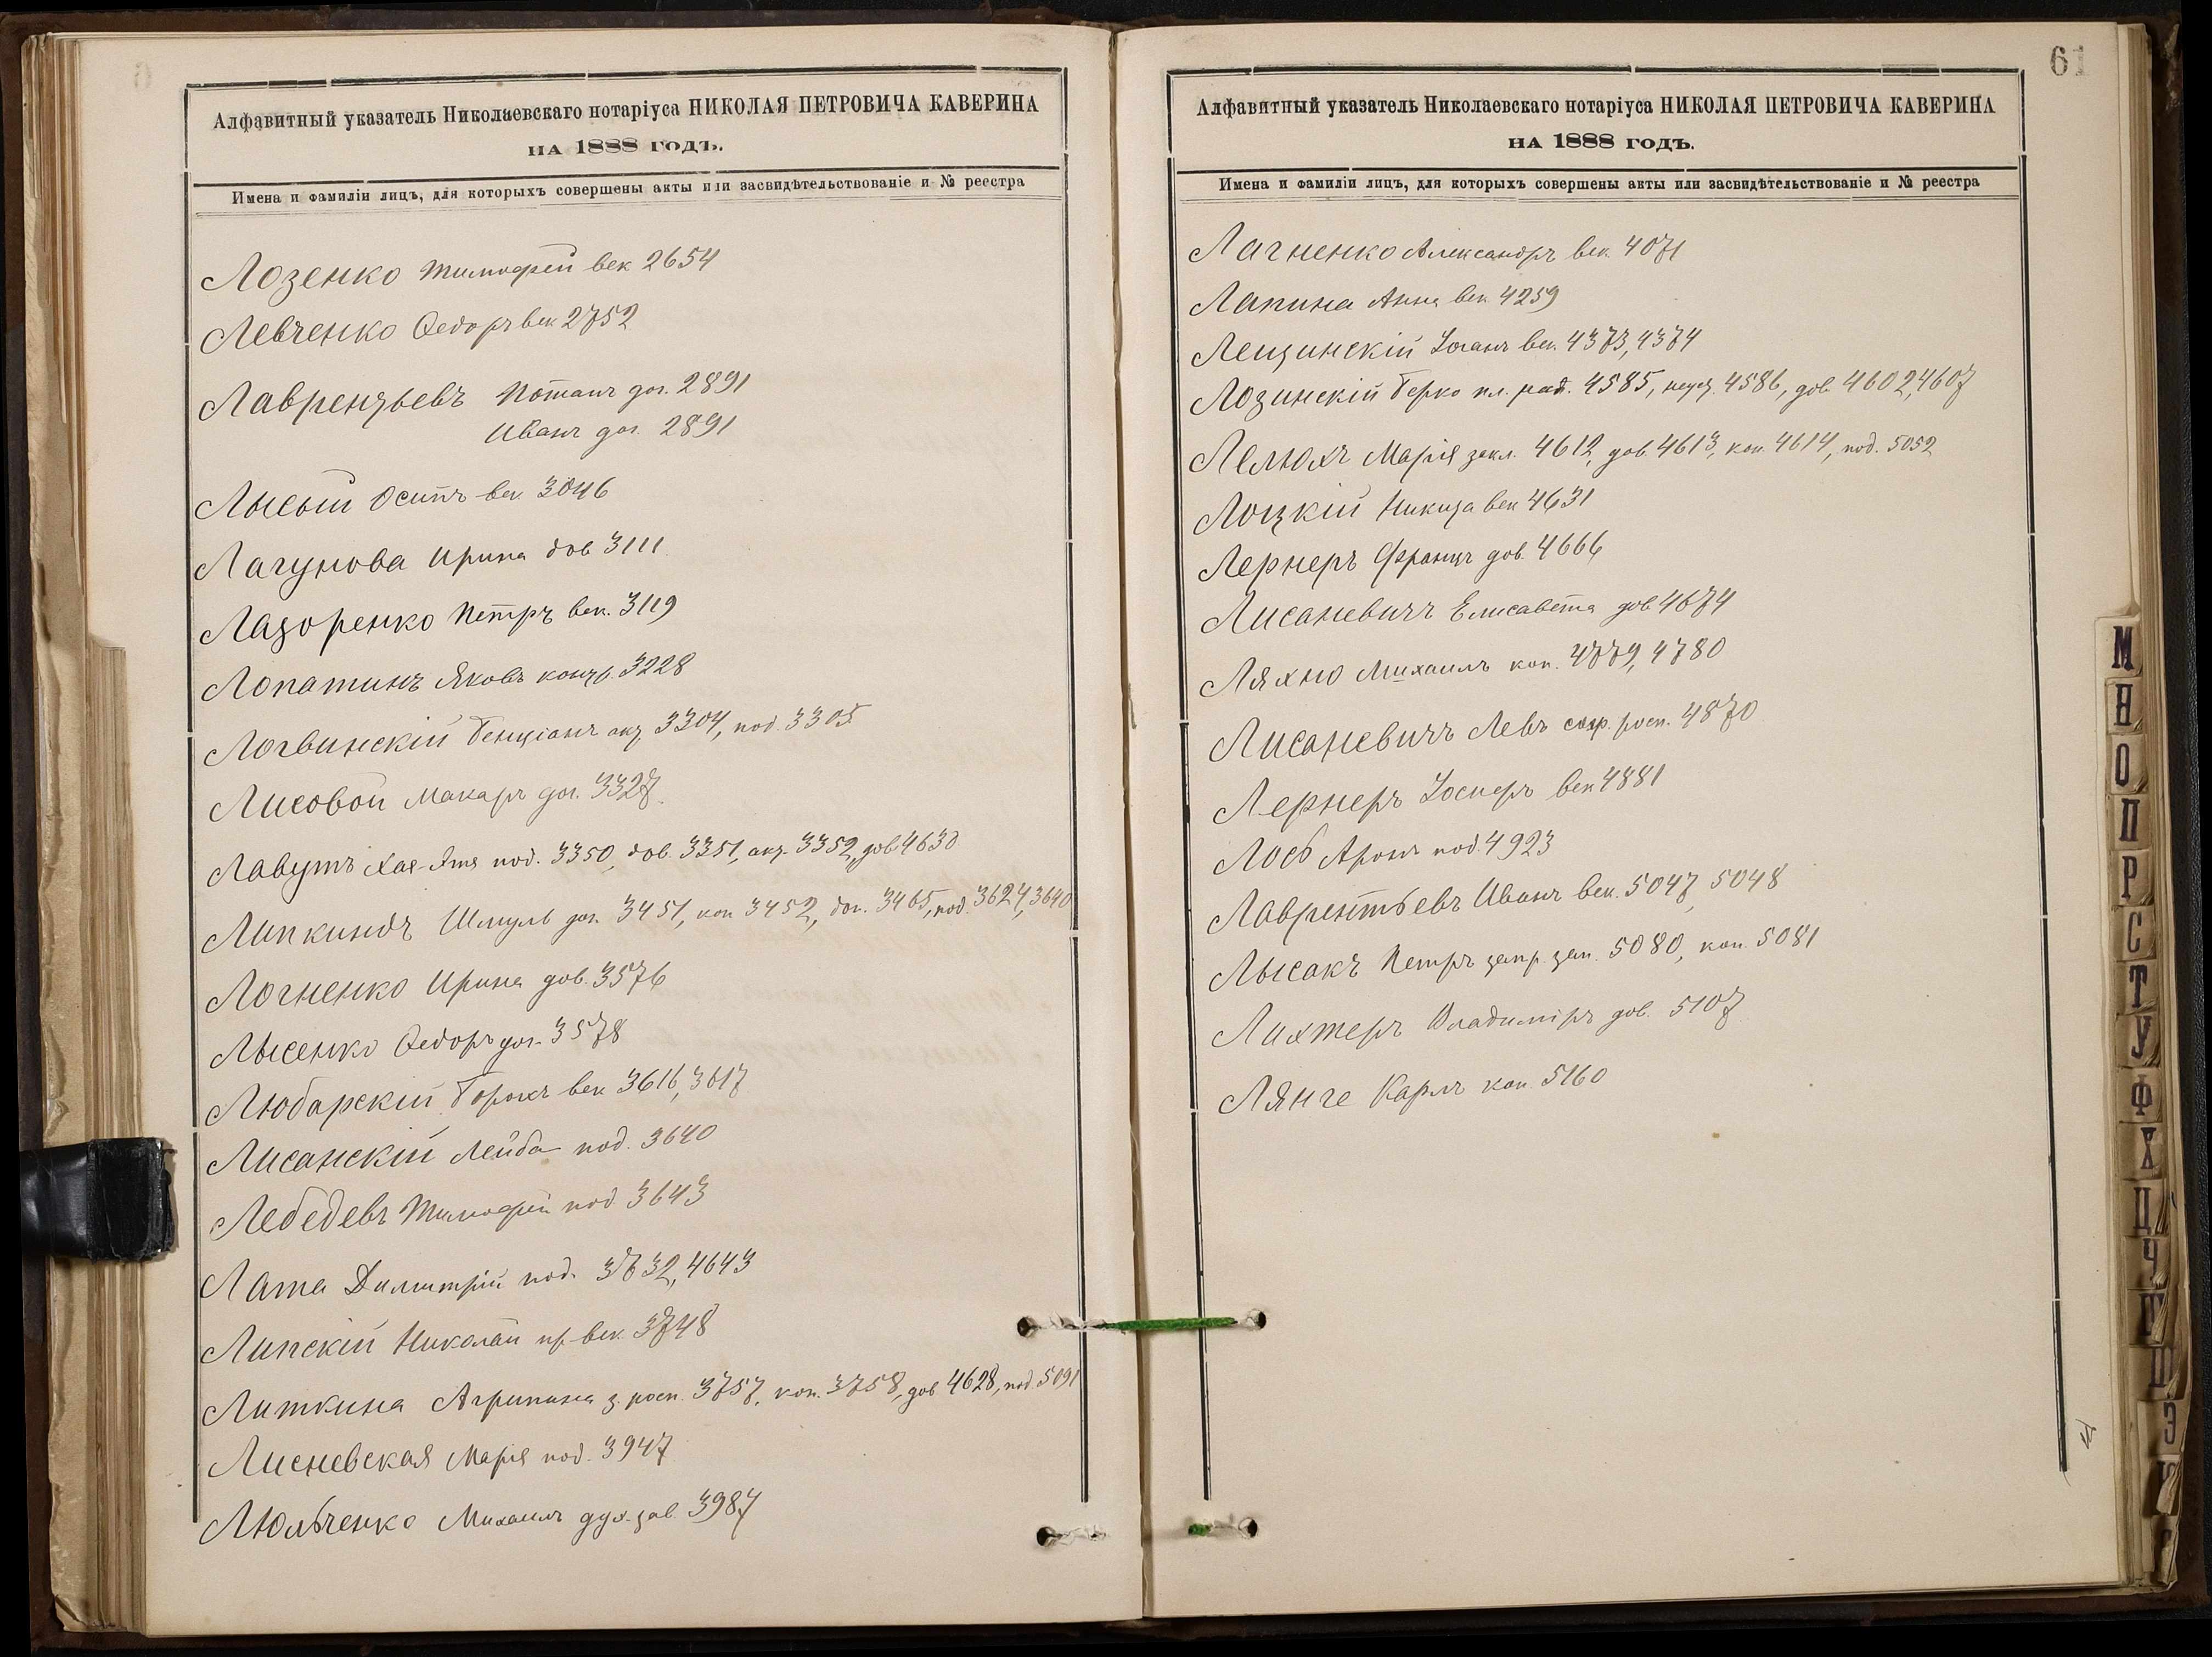 Алфавитный указатель Николаевскаго нотаріуса НИКОЛАЯ ПЕТРОВИЧА КАВЕРИНА
НА 1888 ГОДЪ.
Имена и фамиліи лицъ, для которыхъ совершены акты или засвидѣтельствованіе и № реестра
Лозенко Тимофей век 2654
Левченко Ѳедоръ век 2752
Лаврентьевъ Потапъ дог. 2891
Иванъ дог. 2891
Лысый Осипъ век. 3046
Лагунова Ирина дов 3111
Лазоренко Петръ век. 3119
Лопатинъ Яковъ 3228
Логвинскій Бенціанъ 3304, под. 3305
Лисовой Макаръ дог. 3327
Лавутъ Хая-Этя под. 3350, дов. 3351, акт. 3352, дов 4630
Липкиндъ Шмуль дог. 3451, коп 3452, дог. 3465, под. 3624, 3640
Логненко Ирина дов. 3576
Лысенко Ѳедоръ дог. 3578
Любарскій Борохъ век 3616, 3617
Лисанскій Лейба под. 3640
Лебедевъ Тимофей под 3643
Лата Димитрій под. 3632, 4643
Липскій Николай пр. век. 3748
Литкина Агрипина з. росп. 3757, коп. 3758, дов 4628, под. 5091
Лисневская Марія под. 3947
Люльченко Михаилъ дух. зав. 3987
61
Алфавитный указатель Николаевскаго нотаріуса НИКОЛАЯ ПЕТРОВИЧА КАВЕРИНА
НА 1888 ГОДЪ.
Имена и фамиліи лицъ, для которыхъ совершены акты или засвидѣтельствованіе и № реестра
Лагненко Александръ век. 4071
Лапина Анна век 4259
Лещинскій Іоганъ век. 4373, 4374
Лозинскій Берко 4585, 4586, дов. 4602, 4607
Лелюхъ Марія закл. 4612, дов. 4613, коп. 4614, под. 5052
Лоцкій Никита век 4631
Лернеръ Францъ дов. 4666
Лисаневичъ Елисавета дов 4674
Ляхно Михаилъ коп. 4779, 4780
Лисаневичъ Левъ сохр. росп. 4870
Лернеръ век 4881
Лось Аронъ под. 4923
Лаврентьевъ Иванъ век. 5047, 5048
Лысакъ Петръ запр. зап. 5080, коп. 5081
Лихтеръ Владиміръ дов. 5107
Лянге Карлъ коп. 5160
М
Н
О
П
Р
С
Т
У
Ф
Х
Ц
Ч
Ш
Э